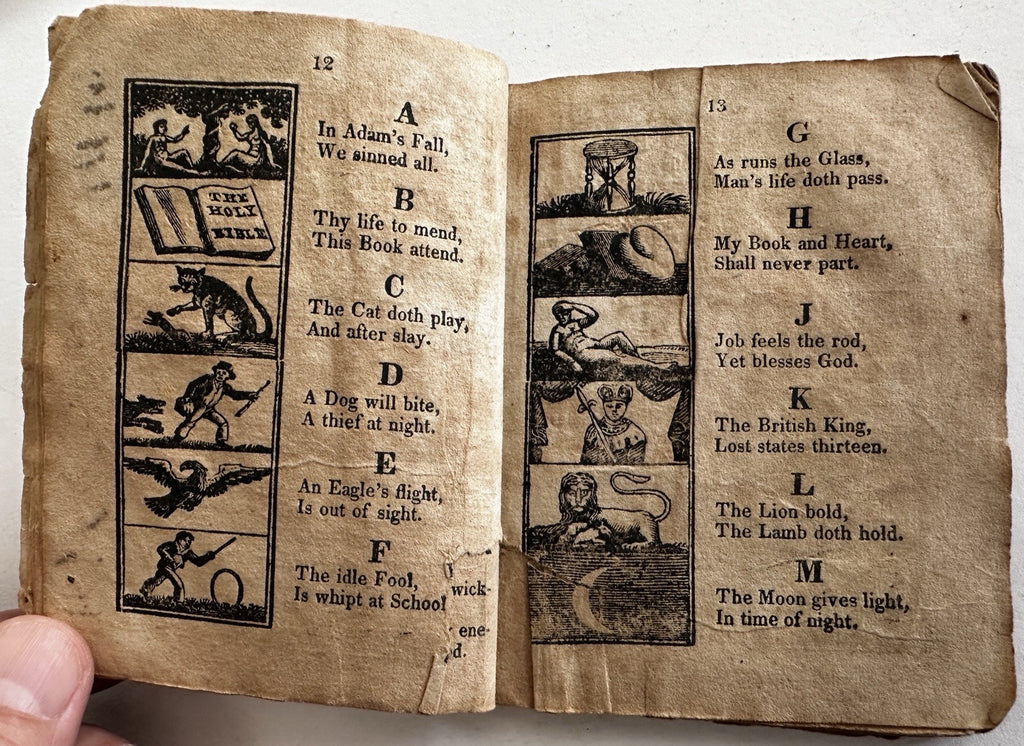 12
A
In Adam's Fall,
We sinned all.
THE
HOLY
BIBLE
B
Thy life to mend,
This Book attend.
C
The Cat doth play,
And after slay.
D
A Dog will bite,
A thief at night.
E
An Eagle's flight,
Is out of sight.
F
The idle Fool,
Is whipt at School
wick-
ene-
d.
13
G
As runs the Glass,
Man's life doth pass.
H
My Book and Heart,
Shall never part.
J
Job feels the rod,
Yet blesses God.
K
The British King,
Lost states thirteen.
L
The Lion bold,
The Lamb doth hold.
M
The Moon gives light,
In time of night.